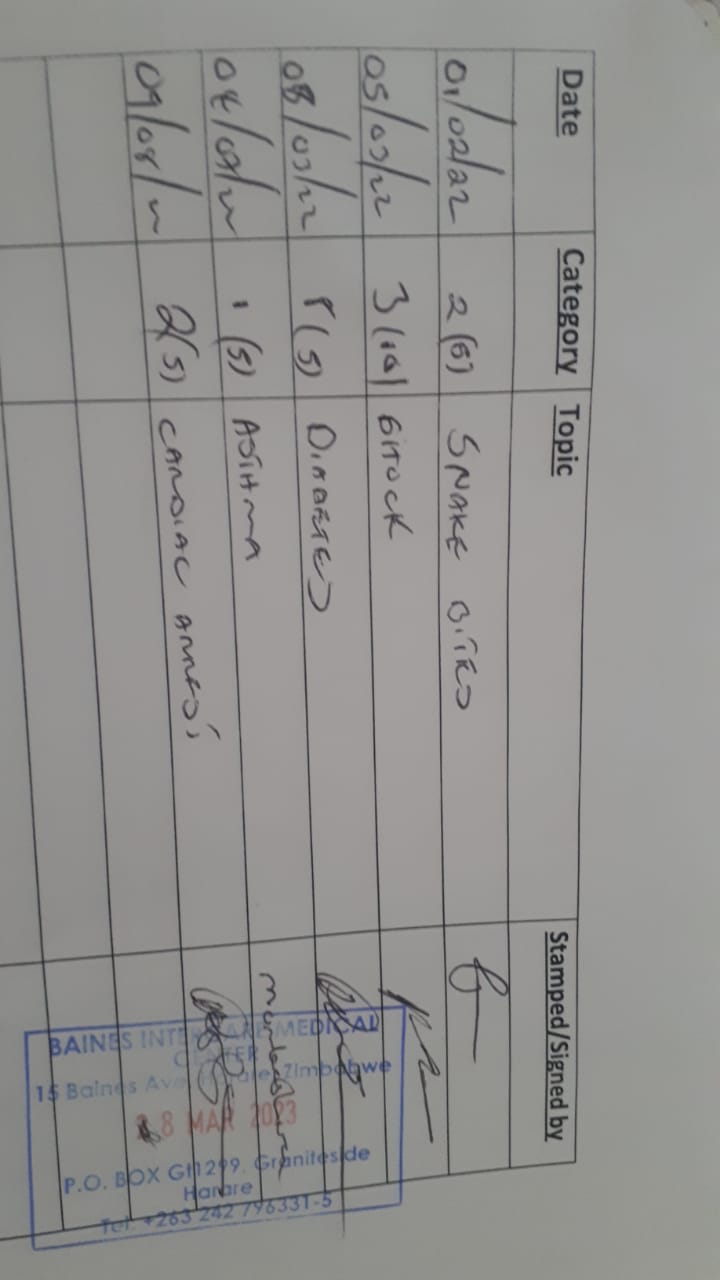 Date Category Topic Stamped/Signed by
01/02/22 2 (5) SNAKE BITES
05/03/22 3 (10) SHOCK
08/03/22 1 (5) DIABETES
1 (5) ASTHMA
09/08/22 2(5) CARDIAC ARREST
BAINES INTERCARE MEDICAL
CENTER
15 Baines Ave Harare, Zimbabwe
8 MAR 2023
P.O. BOX Graniteside
Harare
Tel: +263 242 796331-5